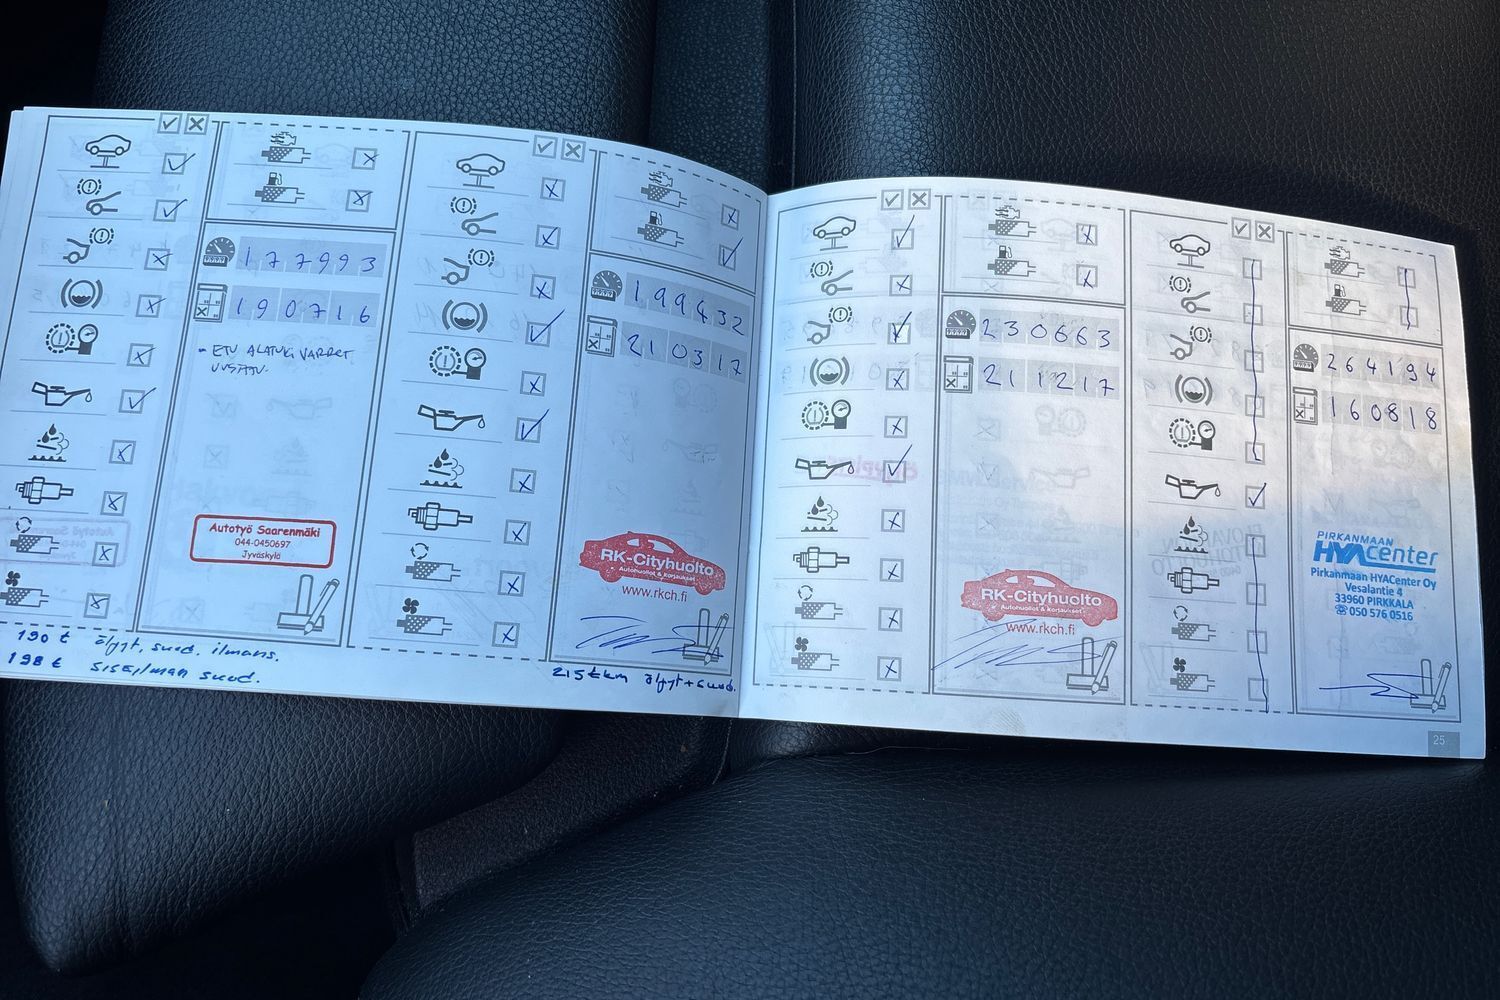 177993
190716
- ETU ALATUKIVARRET
UUSITTU.
Autotyö Saarenmäki
044-0450697
Jyväskylä
190 t öljyt, suod. ilmans.
198 t sisäilman suod.
199432
210317
RK-Cityhuolto
Autohuollot & korjaukset
www.rkch.fi
215tkm öljyt+suod.
230663
211217
RK-Cityhuolto
Autohuollot & korjaukset
www.rkch.fi
264194
160818
PIRKANMAAN
HYACenter
Pirkanmaan HYACenter Oy
Vesalantie 4
33960 PIRKKALA
☏ 050 576 0516
25